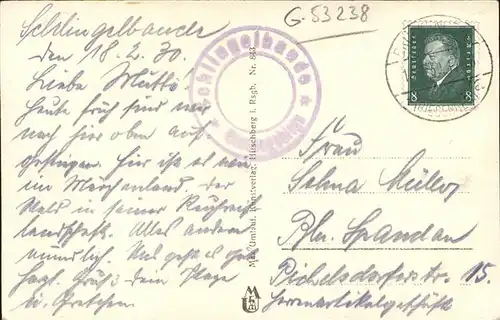 G. 53238
Schlingelbaude
den 18.2.30.
Liebe Mutti!
Heute früh sind wir
nach hier oben auf-
gestiegen. Hier ist es wie
im Märchenland. Der
Wald in seiner Rauhreif
landschaft. Alles andere
mündlich. Uns geht es gut
Schlingelbaude
Max Umlauf, Kunstverlag, Hirschberg i. Rsgb. Nr. 863
Deutsches Reich
8
8
Frau
Selma Müller
Bln. Spandau
Pichelsdorferstr. 15.
Herrenartikelgeschäft